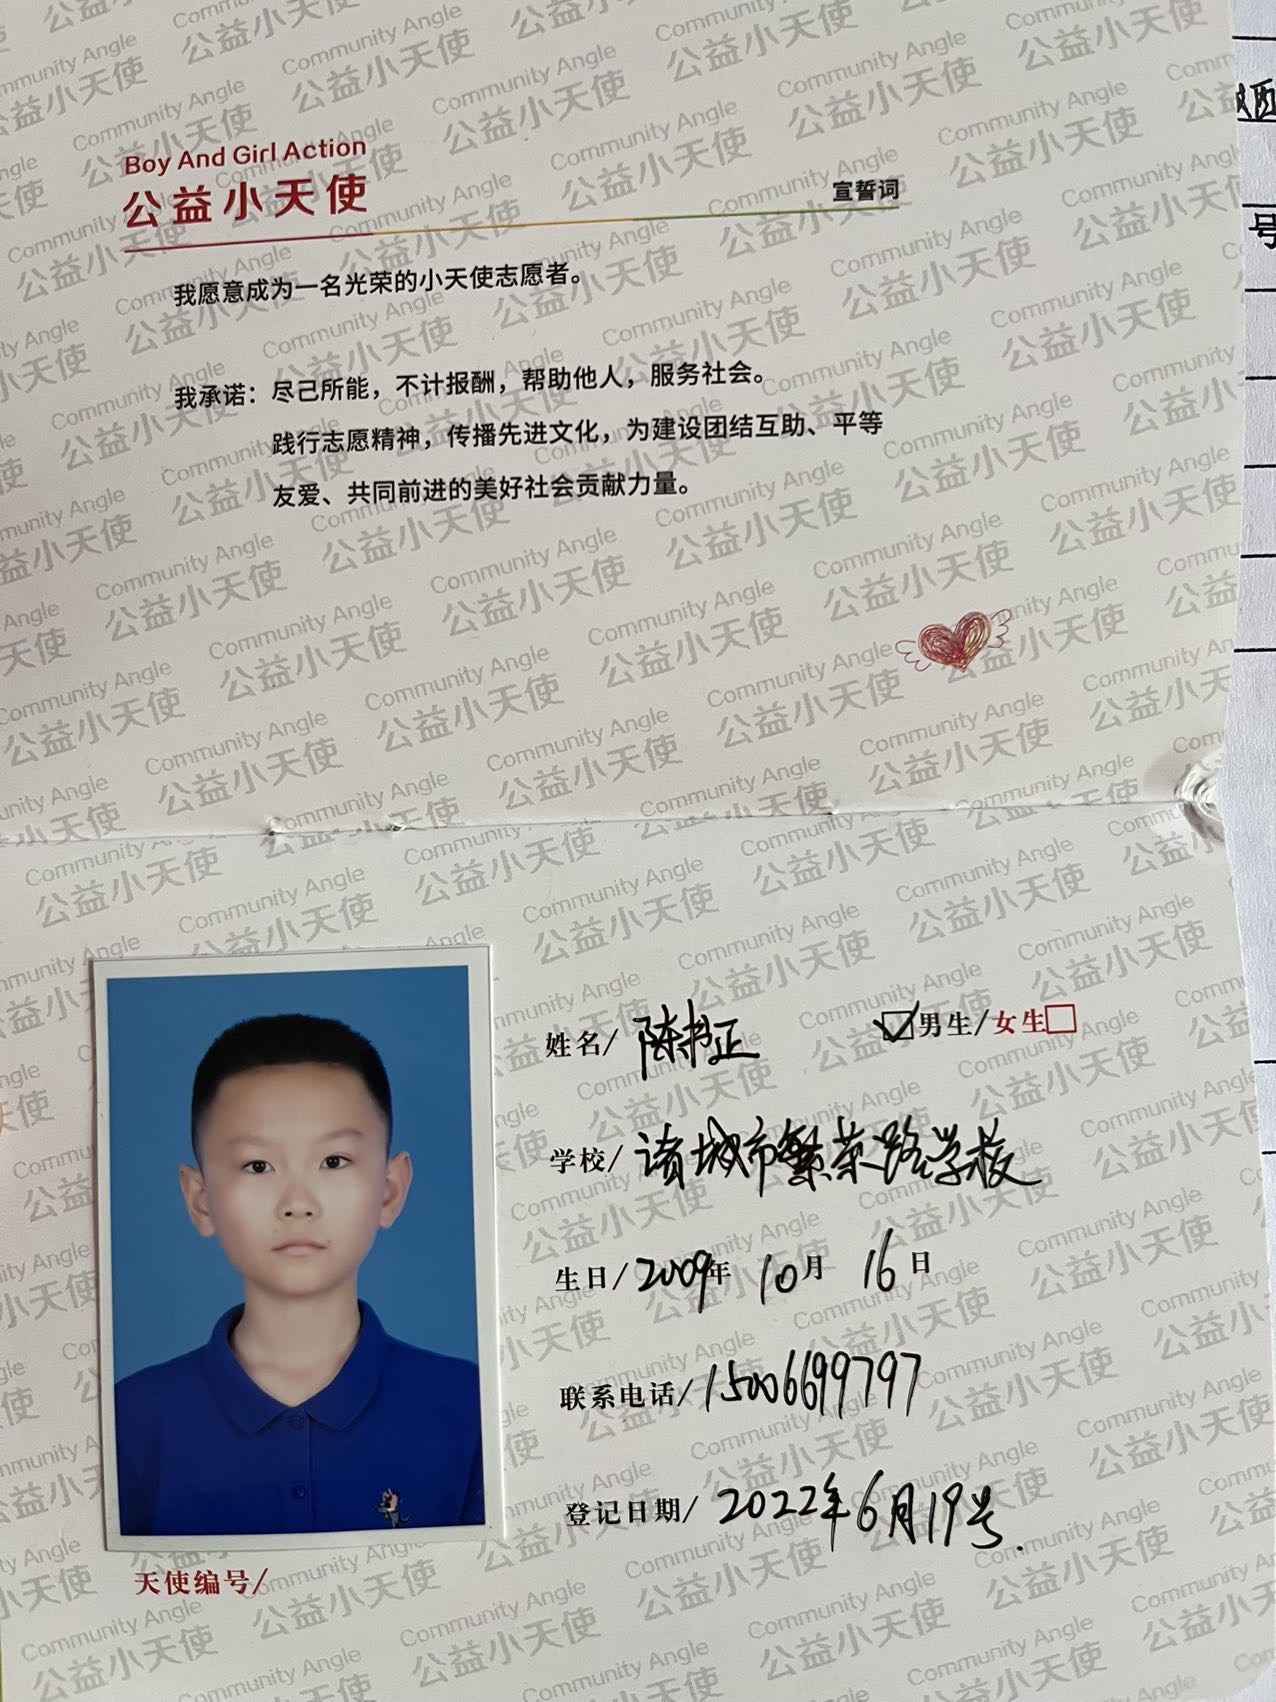 Boy And Girl Action
公益小天使
宣誓词
我愿意成为一名光荣的小天使志愿者。
我承诺：尽己所能，不计报酬，帮助他人，服务社会。
践行志愿精神，传播先进文化，为建设团结互助、平等
友爱、共同前进的美好社会贡献力量。
姓名/ 陈书正 ☑男生/女生□
学校/ 诸城市繁荣路学校
生日/ 2009年 10月 16日
联系电话/ 15006699797
登记日期/ 2022年6月19号.
天使编号/
Community Angle
公益小天使
号